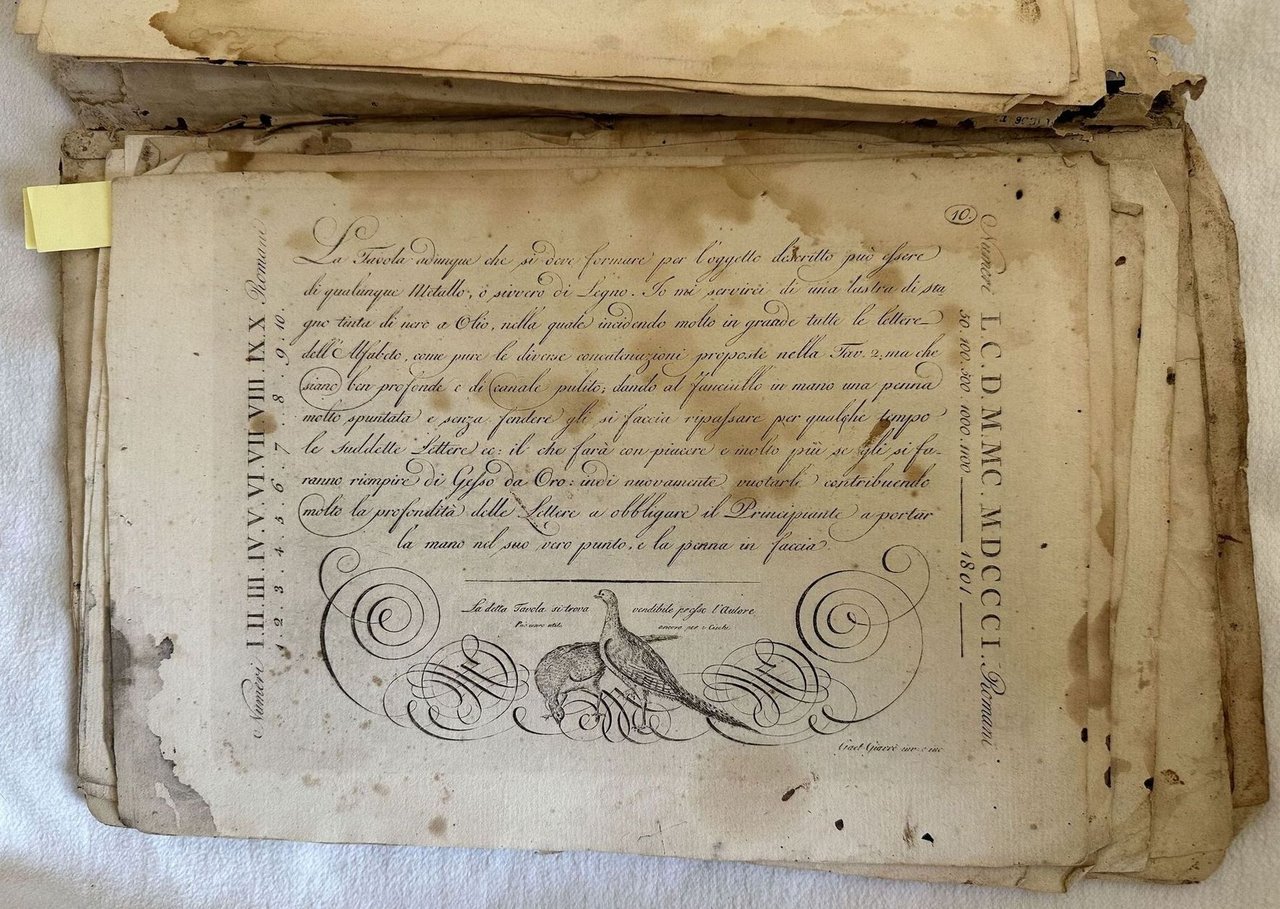 10.
La Tavola adunque che si deve formare per l'oggetto descritto può essere
di qualunque Metallo, o sivvero di Legno. Io mi servirei di una lastra di sta
gno tinta di nero a Olio, nella quale incidendo molto in grande tutte le lettere
dell'Alfabeto, come pure le diverse concatenazioni proposte nella Tav. 2, ma che
siano ben profonde e di canale pulito; dando al fanciullo in mano una penna
molto spuntata e senza fendere gli si faccia ripassare per qualche tempo
le suddette Lettere ec: il che farà con piacere e molto più se gli si fa-
ranno riempire di Gesso da Oro: indi nuovamente vuotarle contribuendo
molto la profondità delle Lettere a obbligare il Principiante a portar
la mano nel suo vero punto, e la penna in faccia
La detta Tavola si trova vendibile presso l'Autore
Può essere utile ancora per i Ciechi
Gaet Giarrè inv. e inc
Numeri I.II.III.IV.V.VI.VII.VIII.IX.X Romani
1. 2. 3. 4. 5. 6. 7. 8. 9. 10.
Numeri L.C.D.M.MC.MDCCCI. Romani
50. 100. 500. 1000. 1100 1801